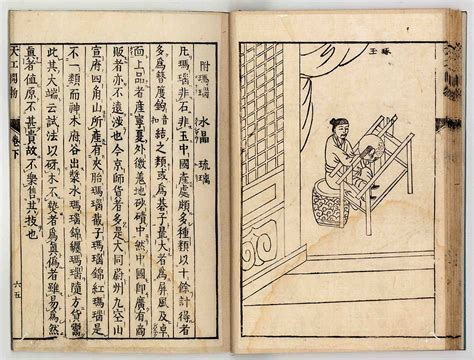 琢玉
附瑪瑙 水晶 琉璃
凡瑪瑙非石非玉中國產處頗多種類以十餘計得者
多為簪鉤結之類或為棊子最大者為屏風及卓
面上品者產寧夏外徼羌地砂磧中然中國即廣有商
販者亦不遠涉也今京師貨者多是大同蔚州九空山
宣府四角山所產有夾胎瑪瑙截子瑪瑙錦紅瑪瑙是
不一類而神木府谷出漿水瑪瑙錦纏瑪瑙隨方貨鬻
此其大端云試法以砑木不熱者為真偽者雖易為然
真者值原不甚貴故不樂售其技也
天工開物
卷下
六五